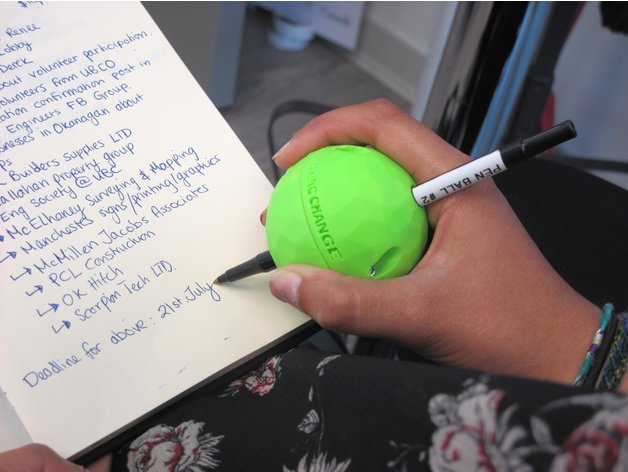 Renee
Derek
about volunteer participation.
volunteers from UBCO
confirmation post in
Engineers FB Group.
in Okanagan about
Builders Supplies LTD
Callahan property group
Eng society @ UBC
→ McElhaney Surveying & Mapping
→ Manchester signs/printing/graphics
→ McMillen Jacobs Associates
→ PCL Construction
→ OK Hitch
→ Scorpion Tech LTD.
Deadline for above: 21st July
CHANGE
PEN BALL #2